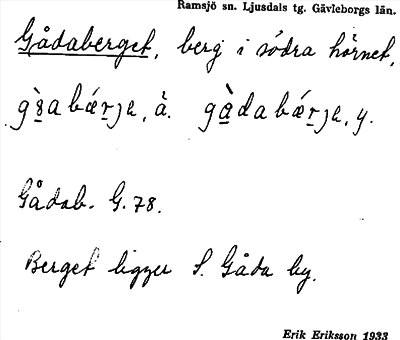 Ramsjö sn. Ljusdals tg. Gävleborgs län.
Gådaberget, berg i södra hörnet,
Gådab. G. 78.
Berget ligger S. Gåda by.
Erik Eriksson 1933